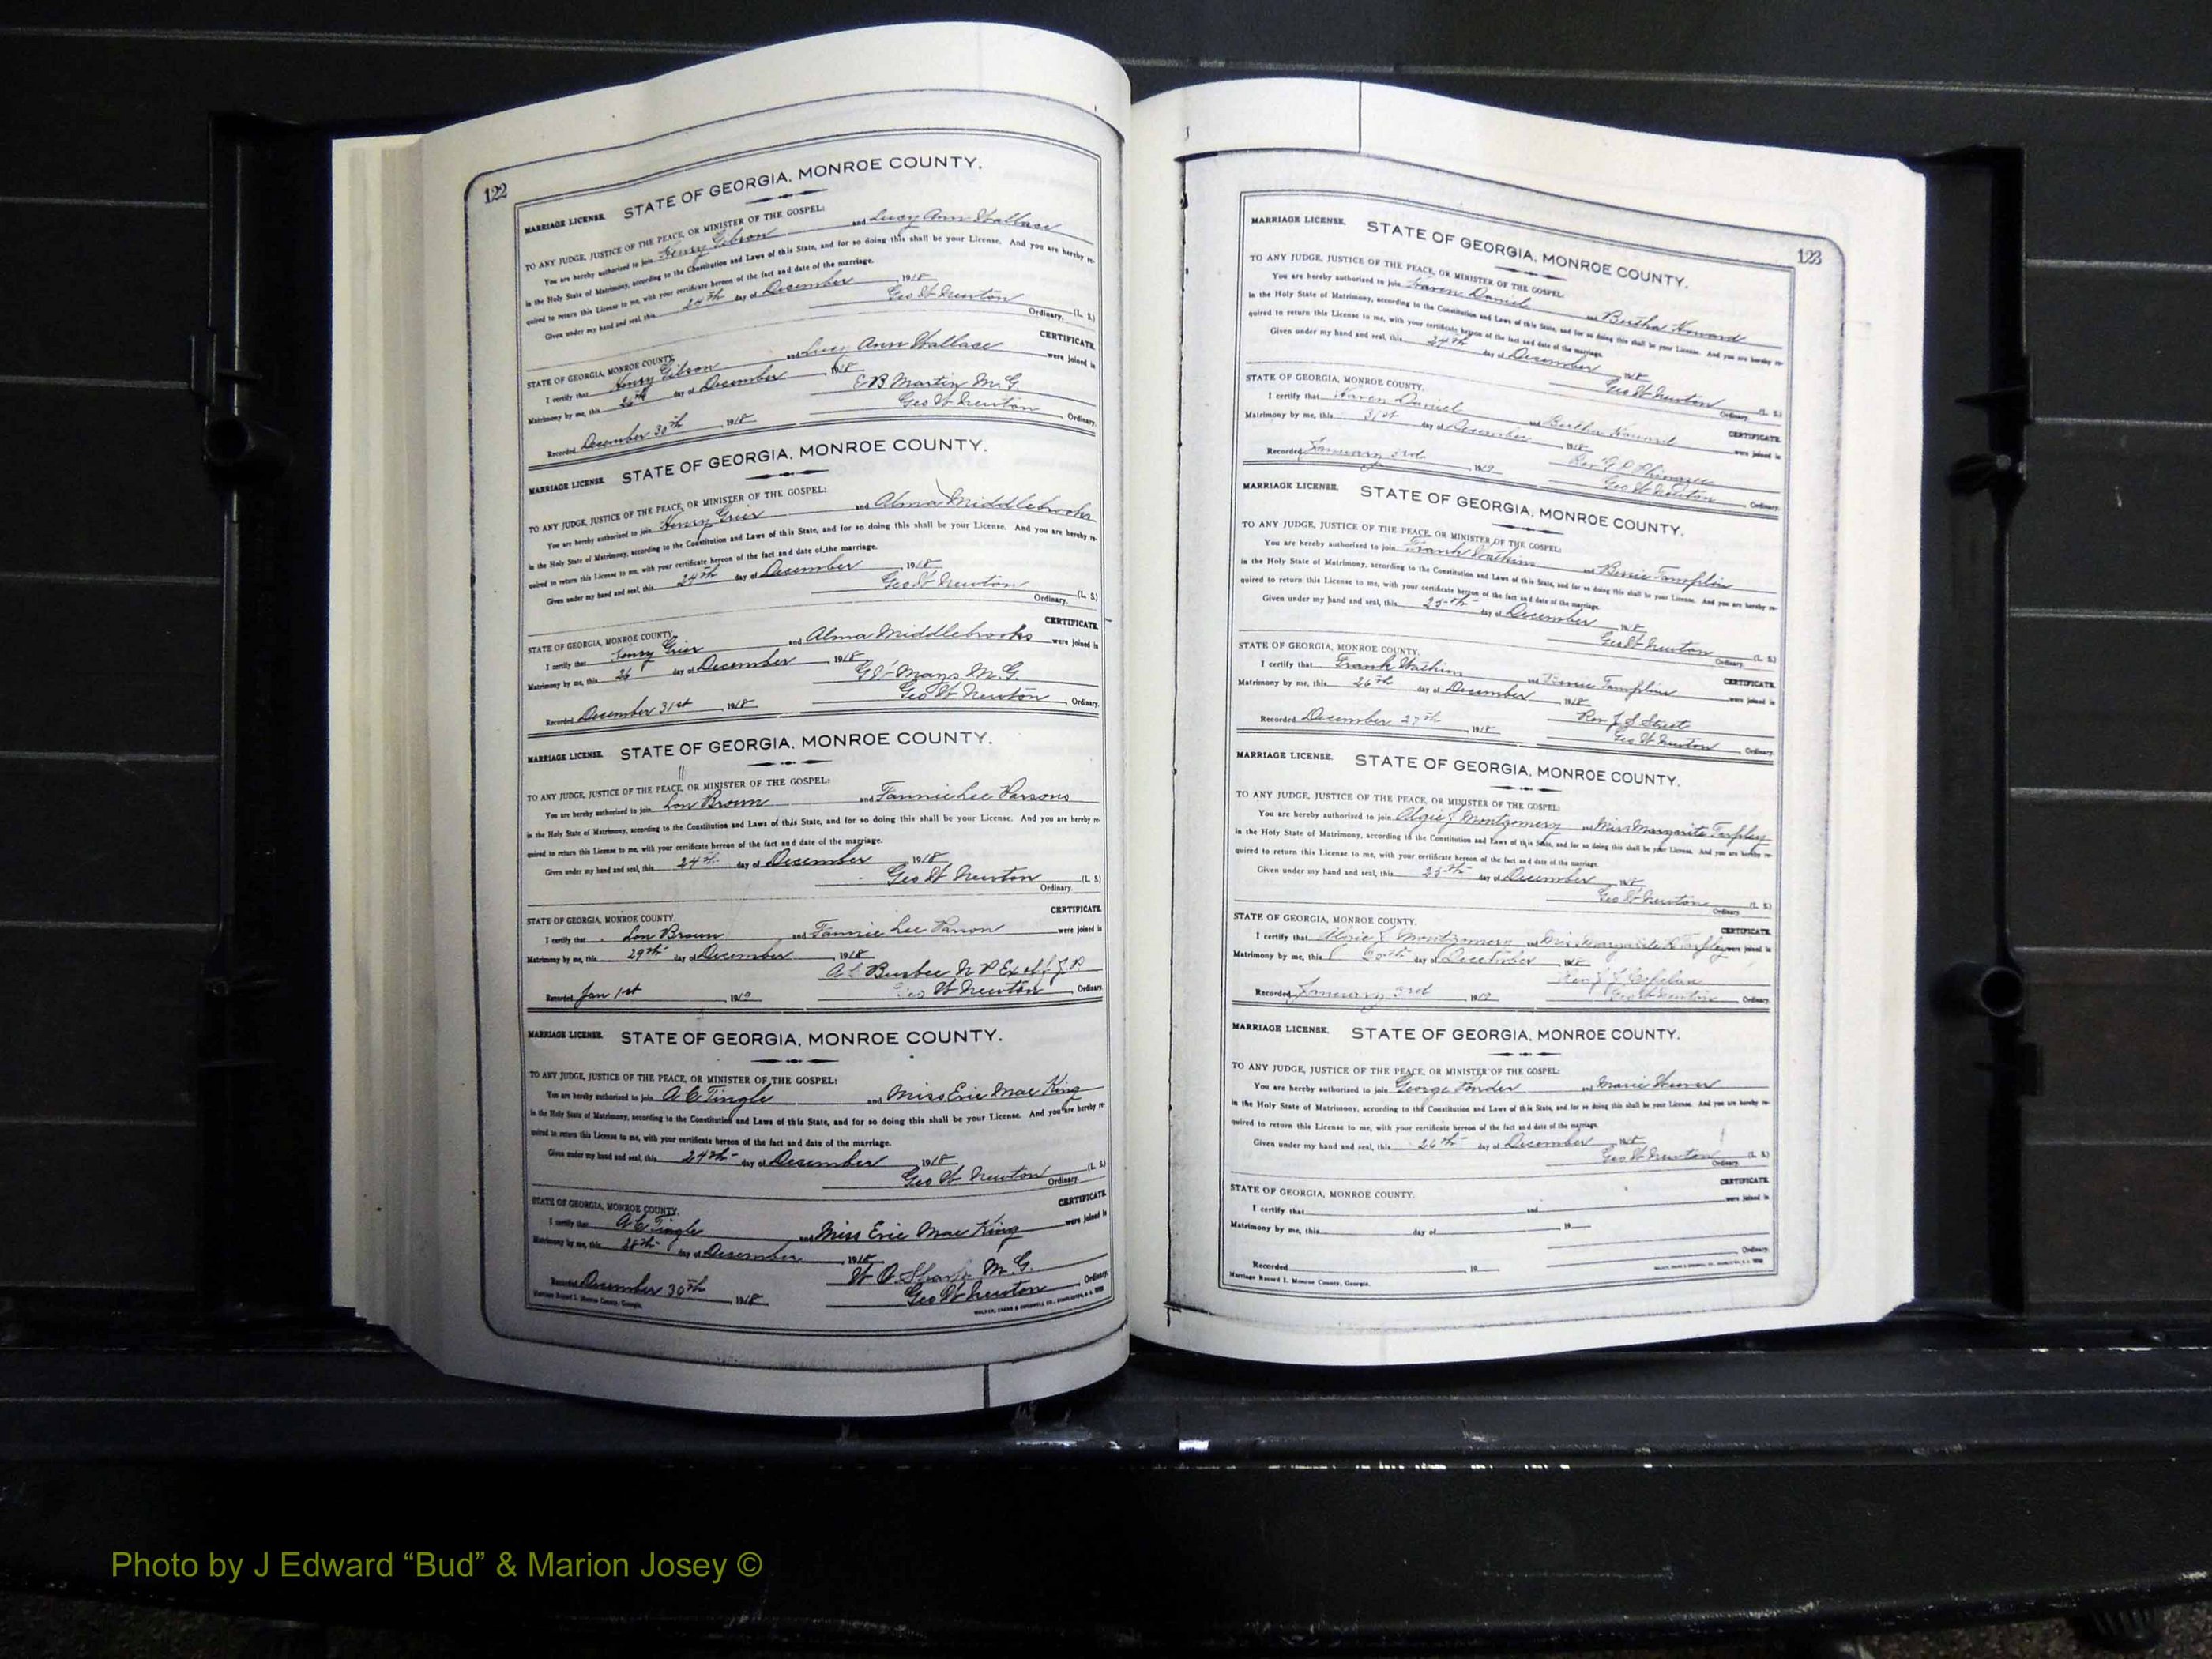 122
MARRIAGE LICENSE. STATE OF GEORGIA, MONROE COUNTY.
TO ANY JUDGE, JUSTICE OF THE PEACE, OR MINISTER OF THE GOSPEL:
You are hereby authorized to join Henry Gibson and Lucy Ann Wallase
in the Holy State of Matrimony, according to the Constitution and Laws of this State, and for so doing this shall be your License. And you are hereby re-
quired to return this License to me, with your certificate hereon of the fact and date of the marriage.
Given under my hand and seal, this 24th day of December, 1918
Geo W Newton (L. S.)
Ordinary.
CERTIFICATE.
STATE OF GEORGIA, MONROE COUNTY.
I certify that Henry Gibson and Lucy Ann Wallase were joined in
Matrimony by me, this 26th day of December, 1918
E B Martin M. G.
Recorded December 30th, 1918 Geo W Newton, Ordinary.
MARRIAGE LICENSE. STATE OF GEORGIA, MONROE COUNTY.
TO ANY JUDGE, JUSTICE OF THE PEACE, OR MINISTER OF THE GOSPEL:
You are hereby authorized to join Henry Grier and Alma Middlebrooks
in the Holy State of Matrimony, according to the Constitution and Laws of this State, and for so doing this shall be your License. And you are hereby re-
quired to return this License to me, with your certificate hereon of the fact and date of the marriage.
Given under my hand and seal, this 24th day of December, 1918
Geo W Newton (L. S.)
Ordinary.
CERTIFICATE.
STATE OF GEORGIA, MONROE COUNTY.
I certify that Henry Grier and Alma Middlebrooks were joined in
Matrimony by me, this 26 day of December, 1918
G W Mays M. G.
Recorded December 31st, 1918 Geo W Newton, Ordinary.
MARRIAGE LICENSE. STATE OF GEORGIA, MONROE COUNTY.
TO ANY JUDGE, JUSTICE OF THE PEACE, OR MINISTER OF THE GOSPEL:
You are hereby authorized to join Lon Brown and Fannie Lee Parsons
in the Holy State of Matrimony, according to the Constitution and Laws of this State, and for so doing this shall be your License. And you are hereby re-
quired to return this License to me, with your certificate hereon of the fact and date of the marriage.
Given under my hand and seal, this 24th day of December, 1918
Geo W Newton (L. S.)
Ordinary.
CERTIFICATE.
STATE OF GEORGIA, MONROE COUNTY.
I certify that Lon Brown and Fannie Lee Parson were joined in
Matrimony by me, this 29th day of December, 1918
Busbee N P Ex off J. P.
Recorded Jan 1st, 1919 Geo W Newton, Ordinary.
MARRIAGE LICENSE. STATE OF GEORGIA, MONROE COUNTY.
TO ANY JUDGE, JUSTICE OF THE PEACE, OR MINISTER OF THE GOSPEL:
You are hereby authorized to join A C Tingle and Miss Erie Mae King
in the Holy State of Matrimony, according to the Constitution and Laws of this State, and for so doing this shall be your License. And you are hereby re-
quired to return this License to me, with your certificate hereon of the fact and date of the marriage.
Given under my hand and seal, this 24th day of December, 1918
Geo W Newton (L. S.)
Ordinary.
CERTIFICATE.
STATE OF GEORGIA, MONROE COUNTY.
I certify that A C Tingle and Miss Erie Mae King were joined in
Matrimony by me, this 28th day of December, 1918
W O M. G.
Recorded December 30th, 1918 Geo W Newton, Ordinary.
Marriage Record I. Monroe County, Georgia.
123
MARRIAGE LICENSE. STATE OF GEORGIA, MONROE COUNTY.
TO ANY JUDGE, JUSTICE OF THE PEACE, OR MINISTER OF THE GOSPEL:
You are hereby authorized to join Haven Daniel and Bertha Howard
in the Holy State of Matrimony, according to the Constitution and Laws of this State, and for so doing this shall be your License. And you are hereby re-
quired to return this License to me, with your certificate hereon of the fact and date of the marriage.
Given under my hand and seal, this 24th day of December, 1918
Geo W Newton (L. S.)
Ordinary.
CERTIFICATE.
STATE OF GEORGIA, MONROE COUNTY.
I certify that Haven Daniel and Bertha Howard were joined in
Matrimony by me, this 31st day of December, 1918
Rev G
Recorded January 3rd, 1919 Geo W Newton, Ordinary.
MARRIAGE LICENSE. STATE OF GEORGIA, MONROE COUNTY.
TO ANY JUDGE, JUSTICE OF THE PEACE, OR MINISTER OF THE GOSPEL:
You are hereby authorized to join Frank Watkins and Bessie Tamplin
in the Holy State of Matrimony, according to the Constitution and Laws of this State, and for so doing this shall be your License. And you are hereby re-
quired to return this License to me, with your certificate hereon of the fact and date of the marriage.
Given under my hand and seal, this 25th day of December, 1918
Geo W Newton (L. S.)
Ordinary.
CERTIFICATE.
STATE OF GEORGIA, MONROE COUNTY.
I certify that Frank Watkins and Tamplin were joined in
Matrimony by me, this 26th day of December, 1918
Rev J S Street
Recorded December 27th, 1918 Geo W Newton, Ordinary.
MARRIAGE LICENSE. STATE OF GEORGIA, MONROE COUNTY.
TO ANY JUDGE, JUSTICE OF THE PEACE, OR MINISTER OF THE GOSPEL:
You are hereby authorized to join Algie J Montgomery and Miss Margarite Tarpley
in the Holy State of Matrimony, according to the Constitution and Laws of this State, and for so doing this shall be your License. And you are hereby re-
quired to return this License to me, with your certificate hereon of the fact and date of the marriage.
Given under my hand and seal, this 25th day of December, 1918
Geo W Newton (L. S.)
Ordinary.
CERTIFICATE.
STATE OF GEORGIA, MONROE COUNTY.
I certify that Algie J Montgomery and Miss Margarite Tarpley were joined in
Matrimony by me, this day of December, 1918
Copelan
Recorded January 3rd, 1919 Geo W Newton, Ordinary.
MARRIAGE LICENSE. STATE OF GEORGIA, MONROE COUNTY.
TO ANY JUDGE, JUSTICE OF THE PEACE, OR MINISTER OF THE GOSPEL:
You are hereby authorized to join George Ponder and Marie Weaver
in the Holy State of Matrimony, according to the Constitution and Laws of this State, and for so doing this shall be your License. And you are hereby re-
quired to return this License to me, with your certificate hereon of the fact and date of the marriage.
Given under my hand and seal, this 26th day of December, 1918
Geo W Newton (L. S.)
Ordinary.
CERTIFICATE.
STATE OF GEORGIA, MONROE COUNTY.
I certify that and were joined in
Matrimony by me, this day of, 19
Ordinary.
Recorded, 19
Marriage Record I. Monroe County, Georgia.
Photo by J Edward “Bud” & Marion Josey ©